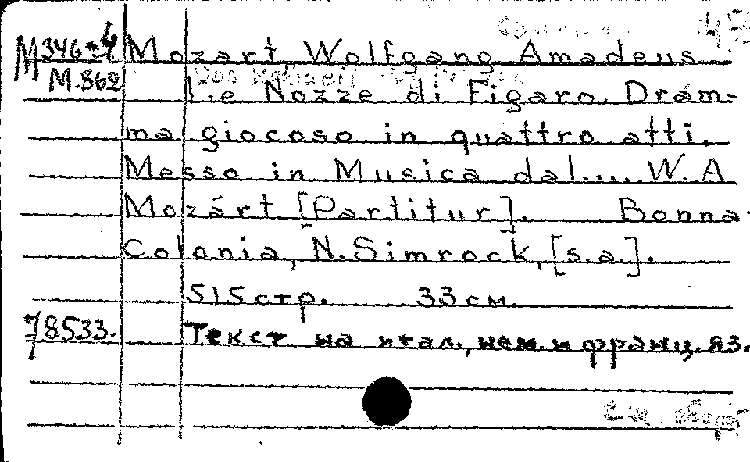 M346-4 Mozart, Wolfgang Amadeus
M.862 Le Nozze di Figaro. Dram-
ma giocoso in quattro atti.
Messo in Musica dal.... W.A
Mozárt [Partitur]. Bonna-
Colonia, N.Simrock, [s.a.].
515стр. 33см.
78533. Текст на итал., нем. и франц. яз.